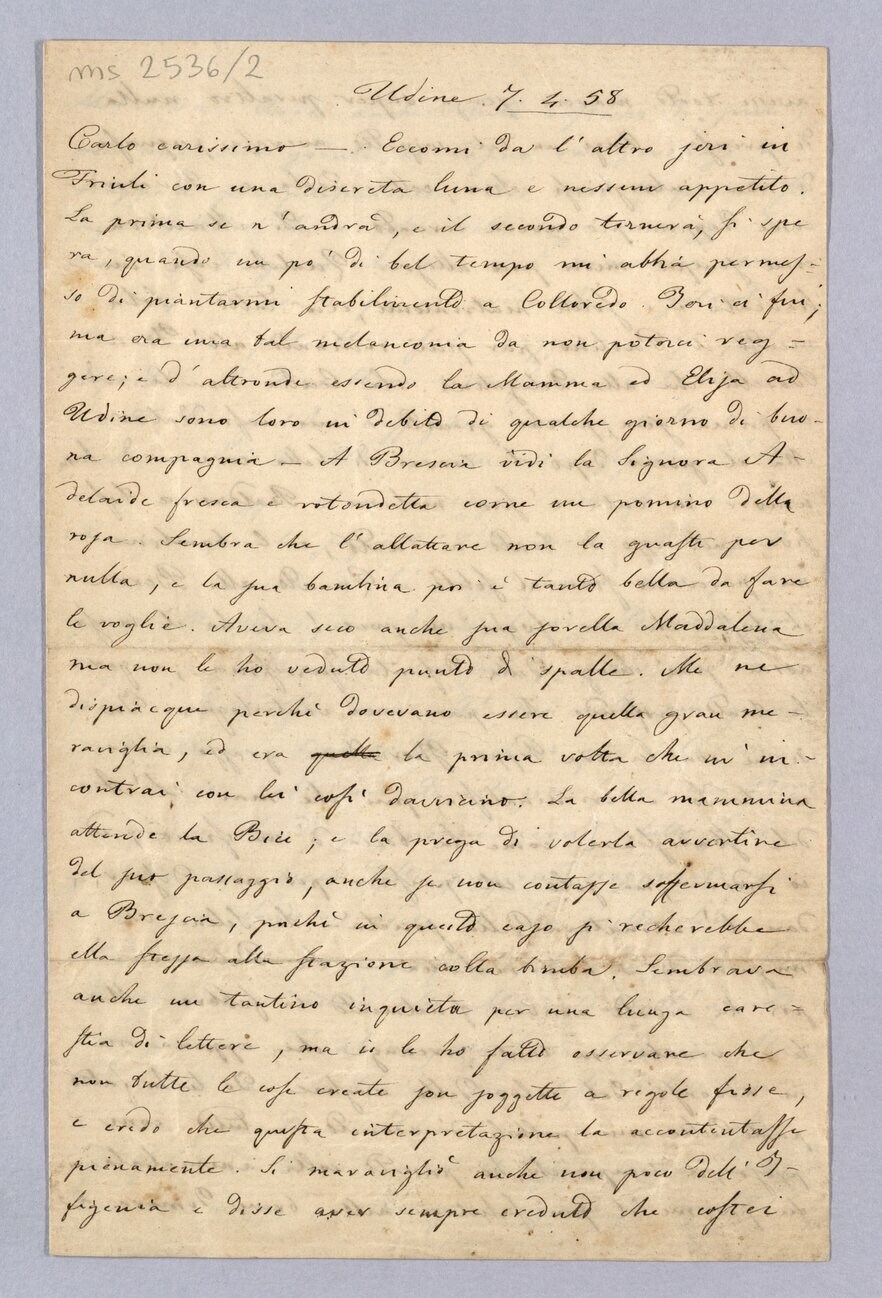 ms 2536/2
Udine. 7. 4. 58
Carlo carissimo — Eccomi da l'altro jeri in
Friuli con una discreta luna e nessun appetito.
La prima se n'andrà, e il secondo tornerà, si spe
ra, quando un po' di bel tempo mi abbia permes-
so di piantarmi stabilmente a Colloredo. Jeri ci fui;
ma era una tal melanconia da non poterci reg-
gere; e d'altronde essendo la Mamma ed Elisa ad
Udine sono loro in debito di qualche giorno di buo-
na compagnia — A Brescia vidi la Signora A-
delaide fresca e rotondetta come un pomino della
rosa. Sembra che l'allattare non la guasti per
nulla, e la sua bambina poi è tanto bella da fare
le voglie. Aveva seco anche sua sorella Maddalena
ma non le ho veduto punto di spalle. Me ne
dispiacque perchè dovevano essere quella gran me-
raviglia, ed era quella la prima volta che m'in-
contrai con lei così davvicino. La bella mammina
attende la Bice; e la prega di volerla avvertire
del suo passaggio, anche se non contasse soffermarsi
a Brescia, poichè in questo caso si recherebbe
ella stessa alla stazione colla bimba. Sembrava
anche un tantino inquieta per una lunga care-
stia di lettere, ma io le ho fatto osservare che
non tutte le cose create son soggette a regole fisse,
e credo che questa interpretazione la accontentasse
pienamente. Si maravigliò anche non poco dell'I-
figenia e disse aver sempre creduto che costei